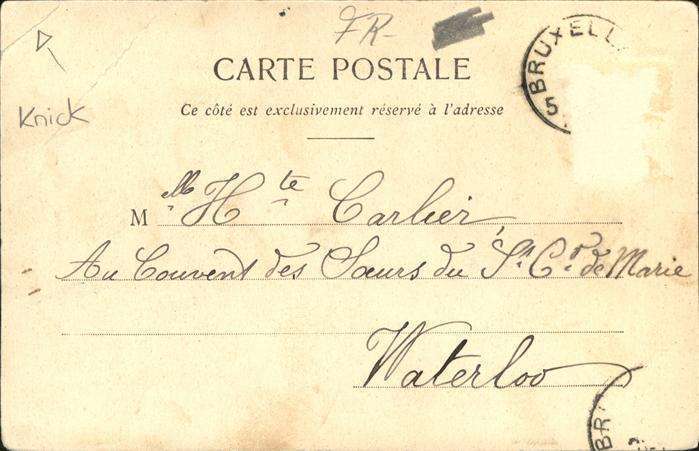 FR-
BRUXELL
5
CARTE POSTALE
Knick
Ce côté est exclusivement réservé à l'adresse
Melle Hte Carlier,
Au Couvent des Sœurs du St. Cr. de Marie
Waterloo
BR